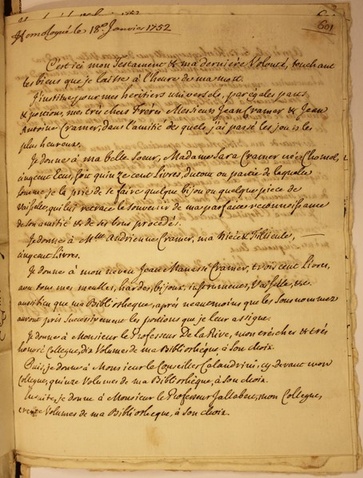 Homologué le 18e Janvier 1752
C'est ici mon Testament & ma derniere Volonté, touchant
les biens que je laisse à l'heure de ma mort.
J'institue pour mes heritiers universels, par egales parts
& portions, mes très chers Freres Messieurs Jean Cramer & Jean
Antoine Cramer, dans l'amitié de quels j'ai passé les jours les
plus heureux.
Je donne à ma belle Soeur, Madame Sara Cramer née
cinq cent Ecus, soit quinze cent Livres, du tout ou partie de laquelle
somme je la prie de se faire quelque bijou ou quelque piece de
Vaisselle, qui lui retrace le souvenir de ma parfaite reconnoissance
de son amitié & de ses bons procédés.
Je donne à Mlle Andrienne Cramer, ma Niece & Filleule,
cinq cent Livres.
Je donne à mon neveu Jean Manassé Cramer, trois cent Livres,
avec tous mes meubles, hardes, bijoux, instrumens, Vaisselle, &c.
aussi bien que ma Bibliotheque, après neanmoins que les sous nommez
auront pris successivement les portions que je leur assigne.
Je donne à Monsieur le Professeur De la Rive, mon cher & très
honoré Collegue, dix Volumes de ma Bibliothèque, à son choix.
Puis, je donne à Monsieur le Conseiller Calandrini, cy devant mon
Collegue, quinze Volumes de ma Bibliothèque, à son choix.
Ensuite, je donne à Monsieur le Professeur Jallabert, mon Collegue,
Volumes de ma Bibliotheque, à son choix.